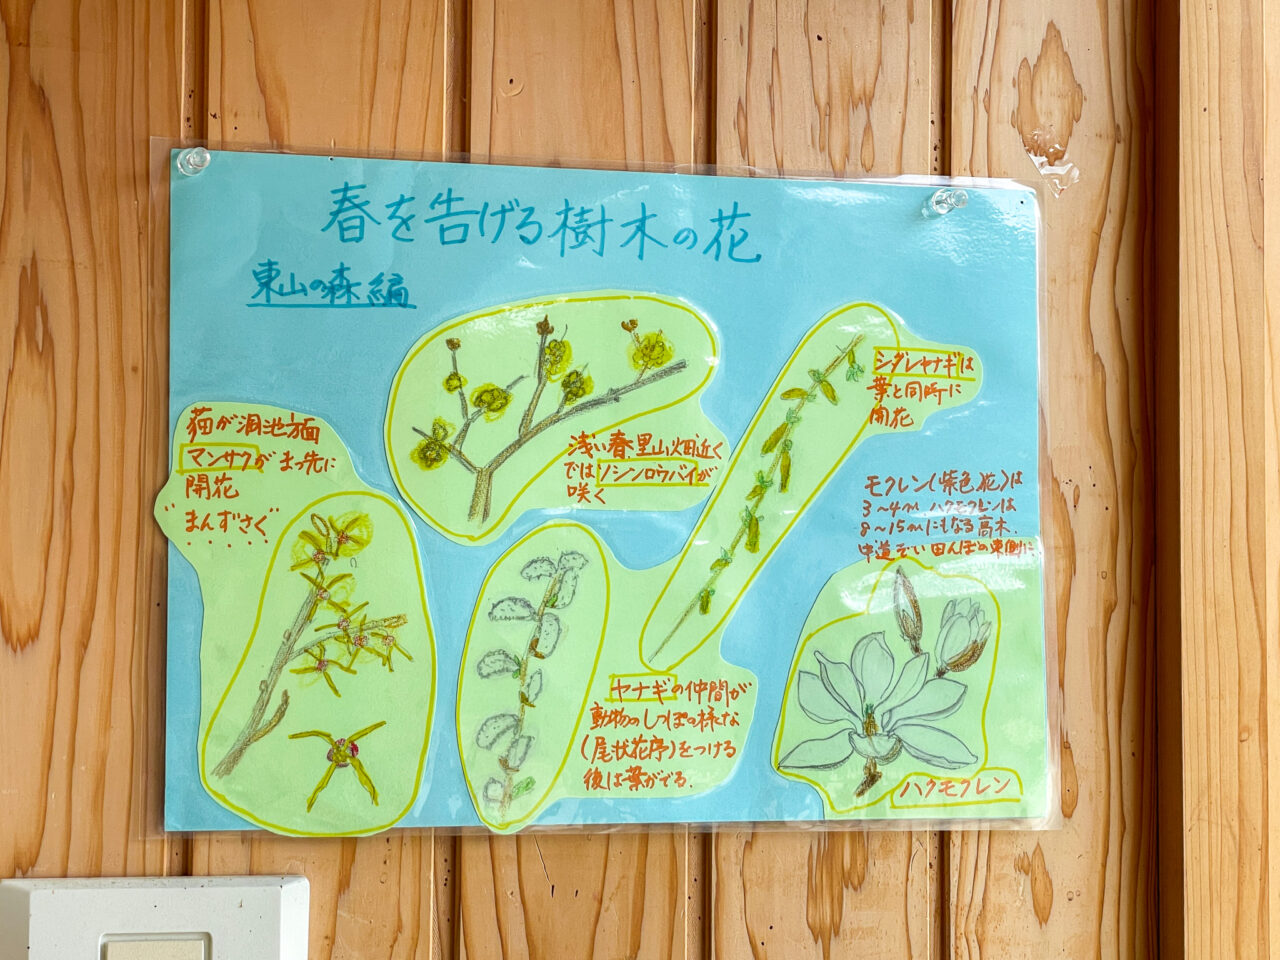 春を告げる樹木の花
東山の森編
猫が洞池方面
マンサクがまっ先に
開花
"まんずさく"
浅い春、里山畑近く
ではソシンロウバイが
咲く
シダレヤナギは
葉と同時に
開花
モクレン(紫色花)は
3〜4m ハクモクレンは
8〜15mにもなる高木、
中道ぞい田んぼの東側に
ヤナギの仲間が
動物のしっぽの様な
(尾状花序)をつける
後は葉がでる。
ハクモクレン